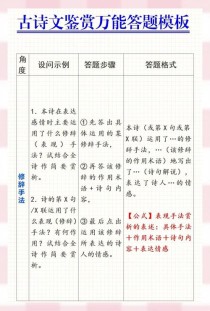 古诗文鉴赏万能答题模板
角度
设问示例
答题步骤
答题格式
修辞手法
1. 本诗在表达
感情时主要运
用了什么修辞
（表现）手
法？试结合全
诗作简要赏
析。
2. 诗的第X句
/X联运用了什
么表现（修辞）
手法？有何作
用？试结合全
诗作简要赏
析。
①先答出具
体运用的某
修辞手法，
②再答该修
辞的作用术
语+诗句内
容。
③最后点出
运用该修辞
所表达的诗
人的情感。
本诗（或第X句或第
X联）运用了…的修
辞手法，…（该修辞
的作用术语）地写出
了…（诗句解说），
表达了诗人…的情
感。
【公式】表现手法赏
析的表述：具体手法
+作用术语+诗句内
容+表达情感